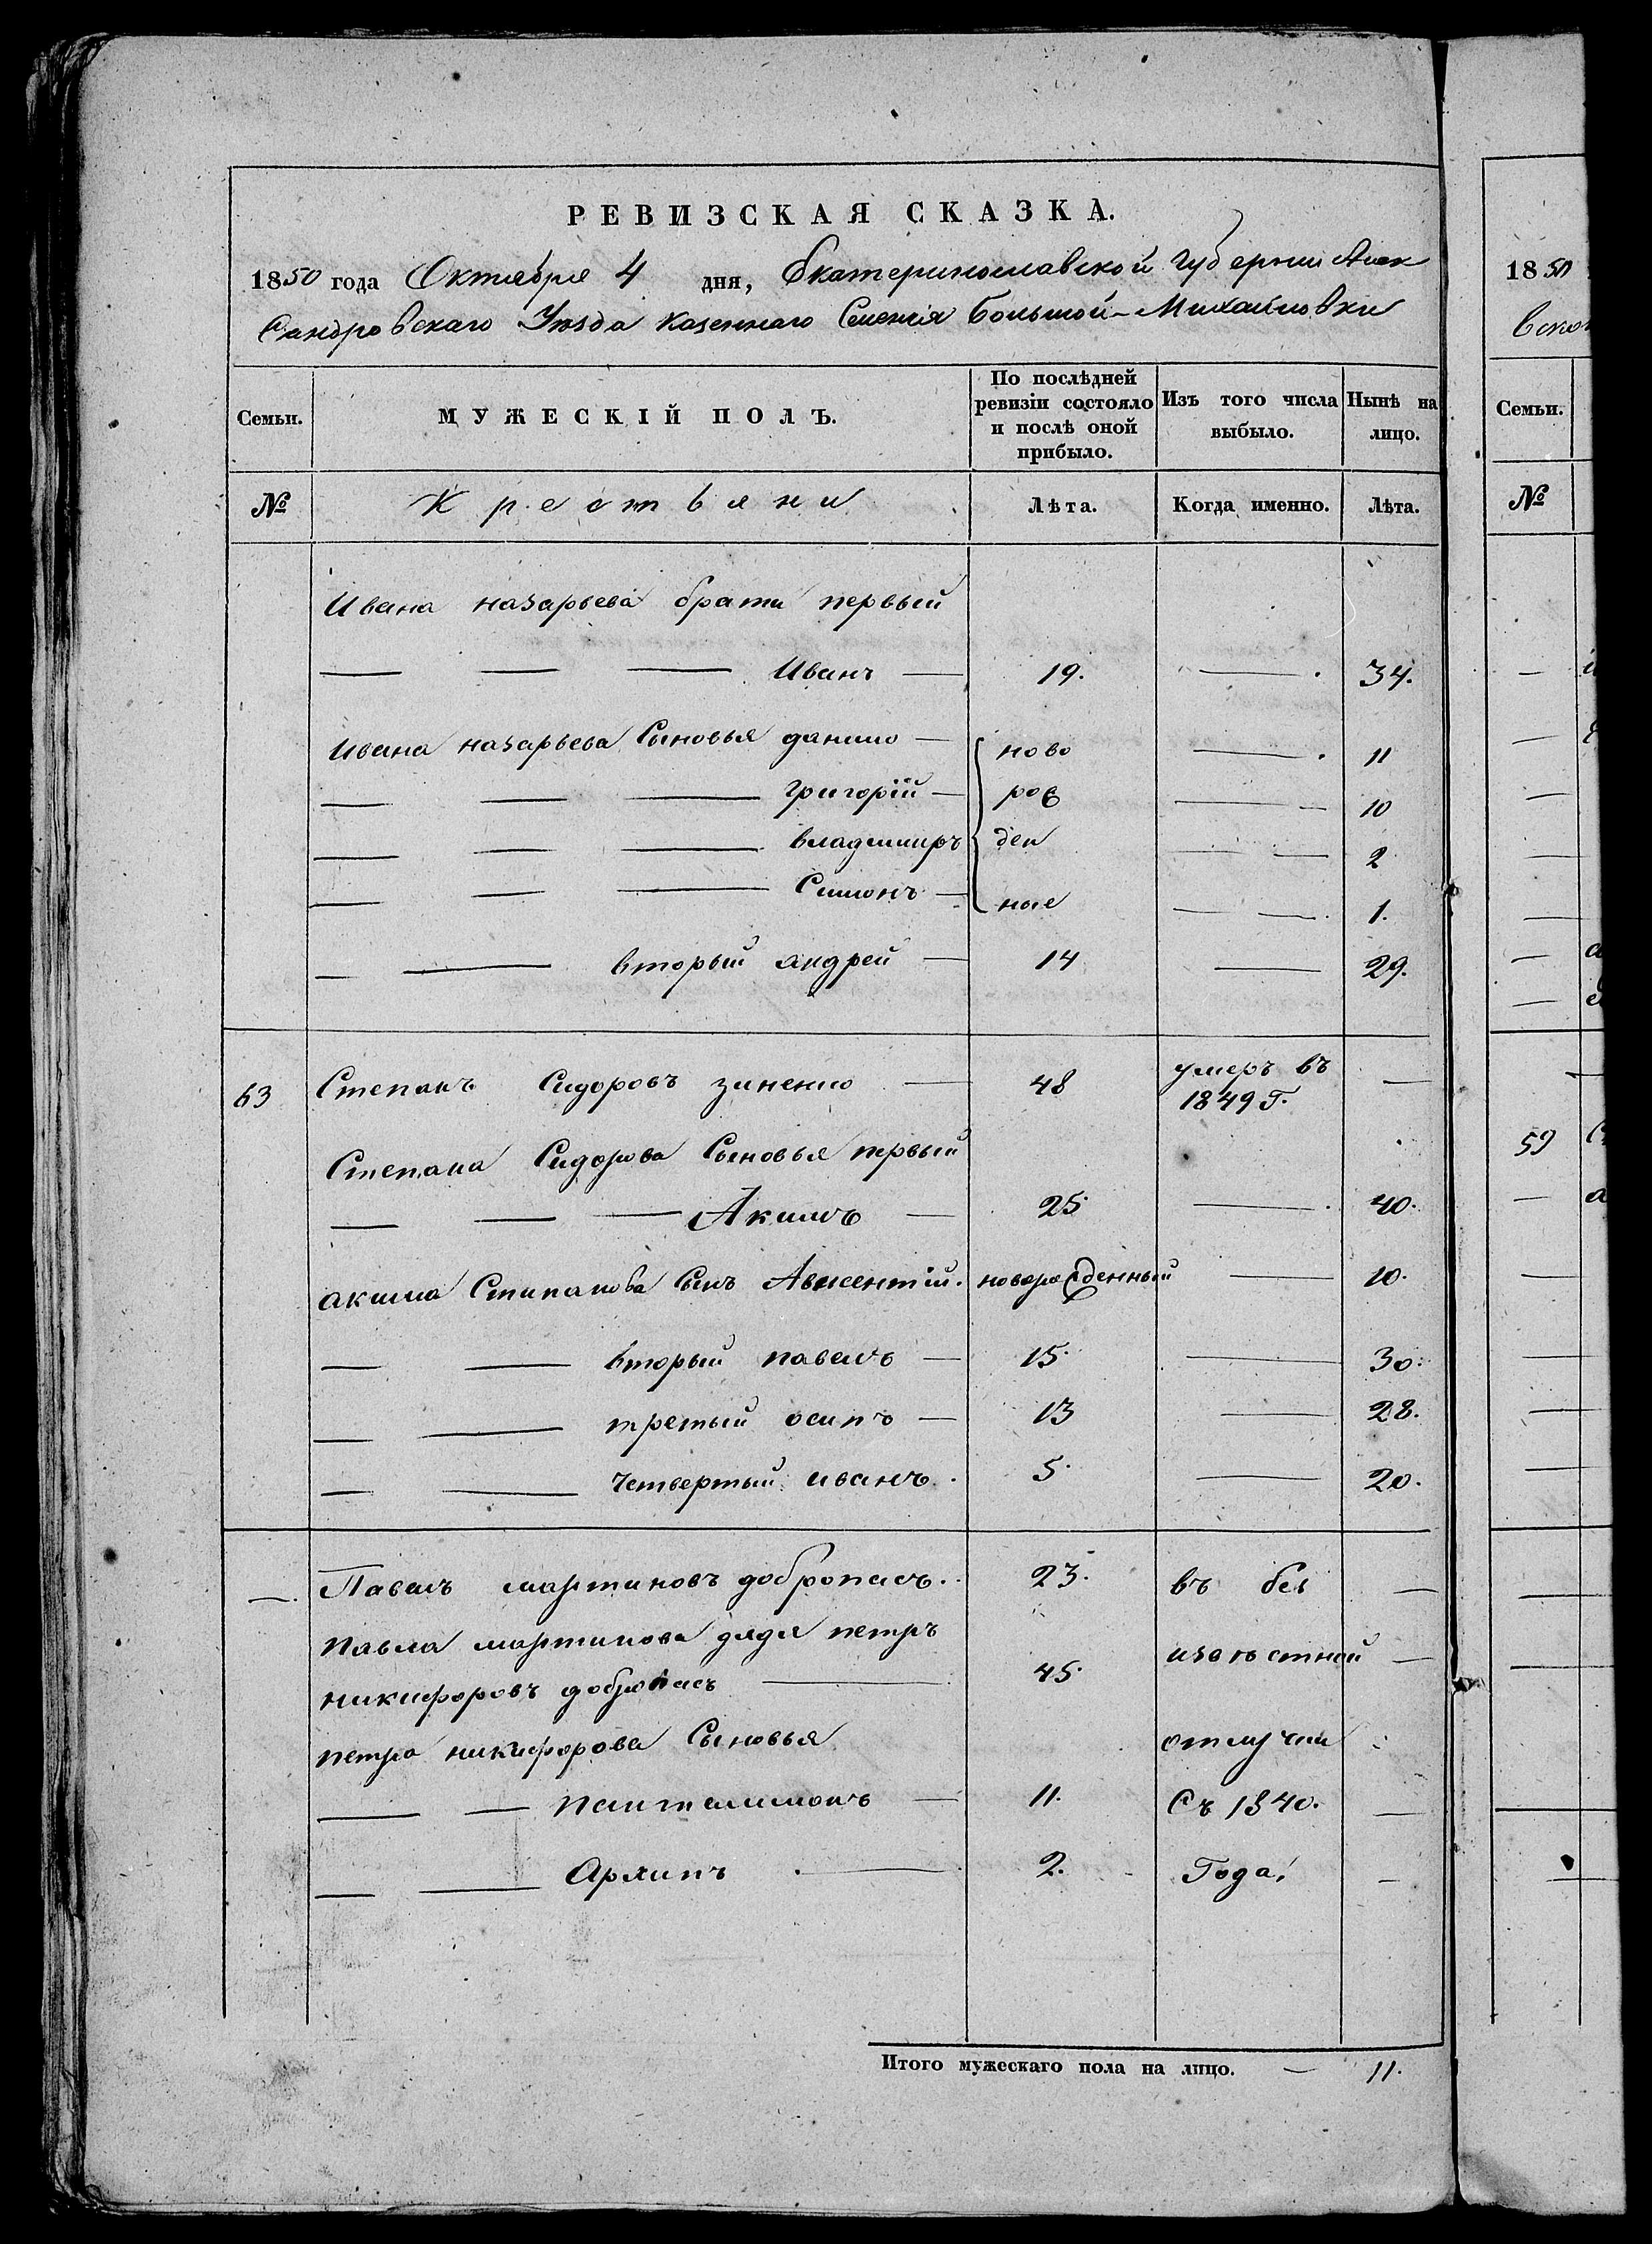 РЕВИЗСКАЯ СКАЗКА.
1850 года Октября 4 дня, Екатеринославской Губернии Алек
сандровскаго Уезда Казеннаго Селения Большой-Михайловки
Семьи. МУЖЕСКІЙ ПОЛЪ. По послѣдней ревизіи состояло и послѣ оной прибыло. Изъ того числа выбыло. Нынѣ на лицо.
№ Крестьяни Лѣта. Когда именно. Лѣта.
Ивана назарьева брати первый
— — — Иванъ — 19. — 34.
Ивана назарьева Сыновья данило — ново — 11
— — — григорій — рож — 10
— — — владимиръ ден — 2
— — — Симонъ — ные — 1.
— — вторый андрей — 14 — 29.
63 Степанъ Сидоровъ зиненко — 48 умеръ въ 1849 Г. —
Степана Сидорова Сыновья первый
— — — Акимъ — 25 — 40.
акима Стипанова Сынъ Авксентій. новорожденный — 10.
— — вторый павелъ — 15. — 30.
— — третый осипъ — 13 — 28.
— — четвертый иванъ. 5. — 20.
—. Павелъ мартиновъ добропасъ. 23. въ без —
павла мартинова дядя петръ
никифоровъ добропасъ — 45. извѣстной —
петра никифорова Сыновья отлучки
— — пантелимонъ — 11. Съ 1840. —
— — Архипъ — 2. Года. —
Итого мужескаго пола на лицо. — 11.
1850
вско
Семьи.
№
59